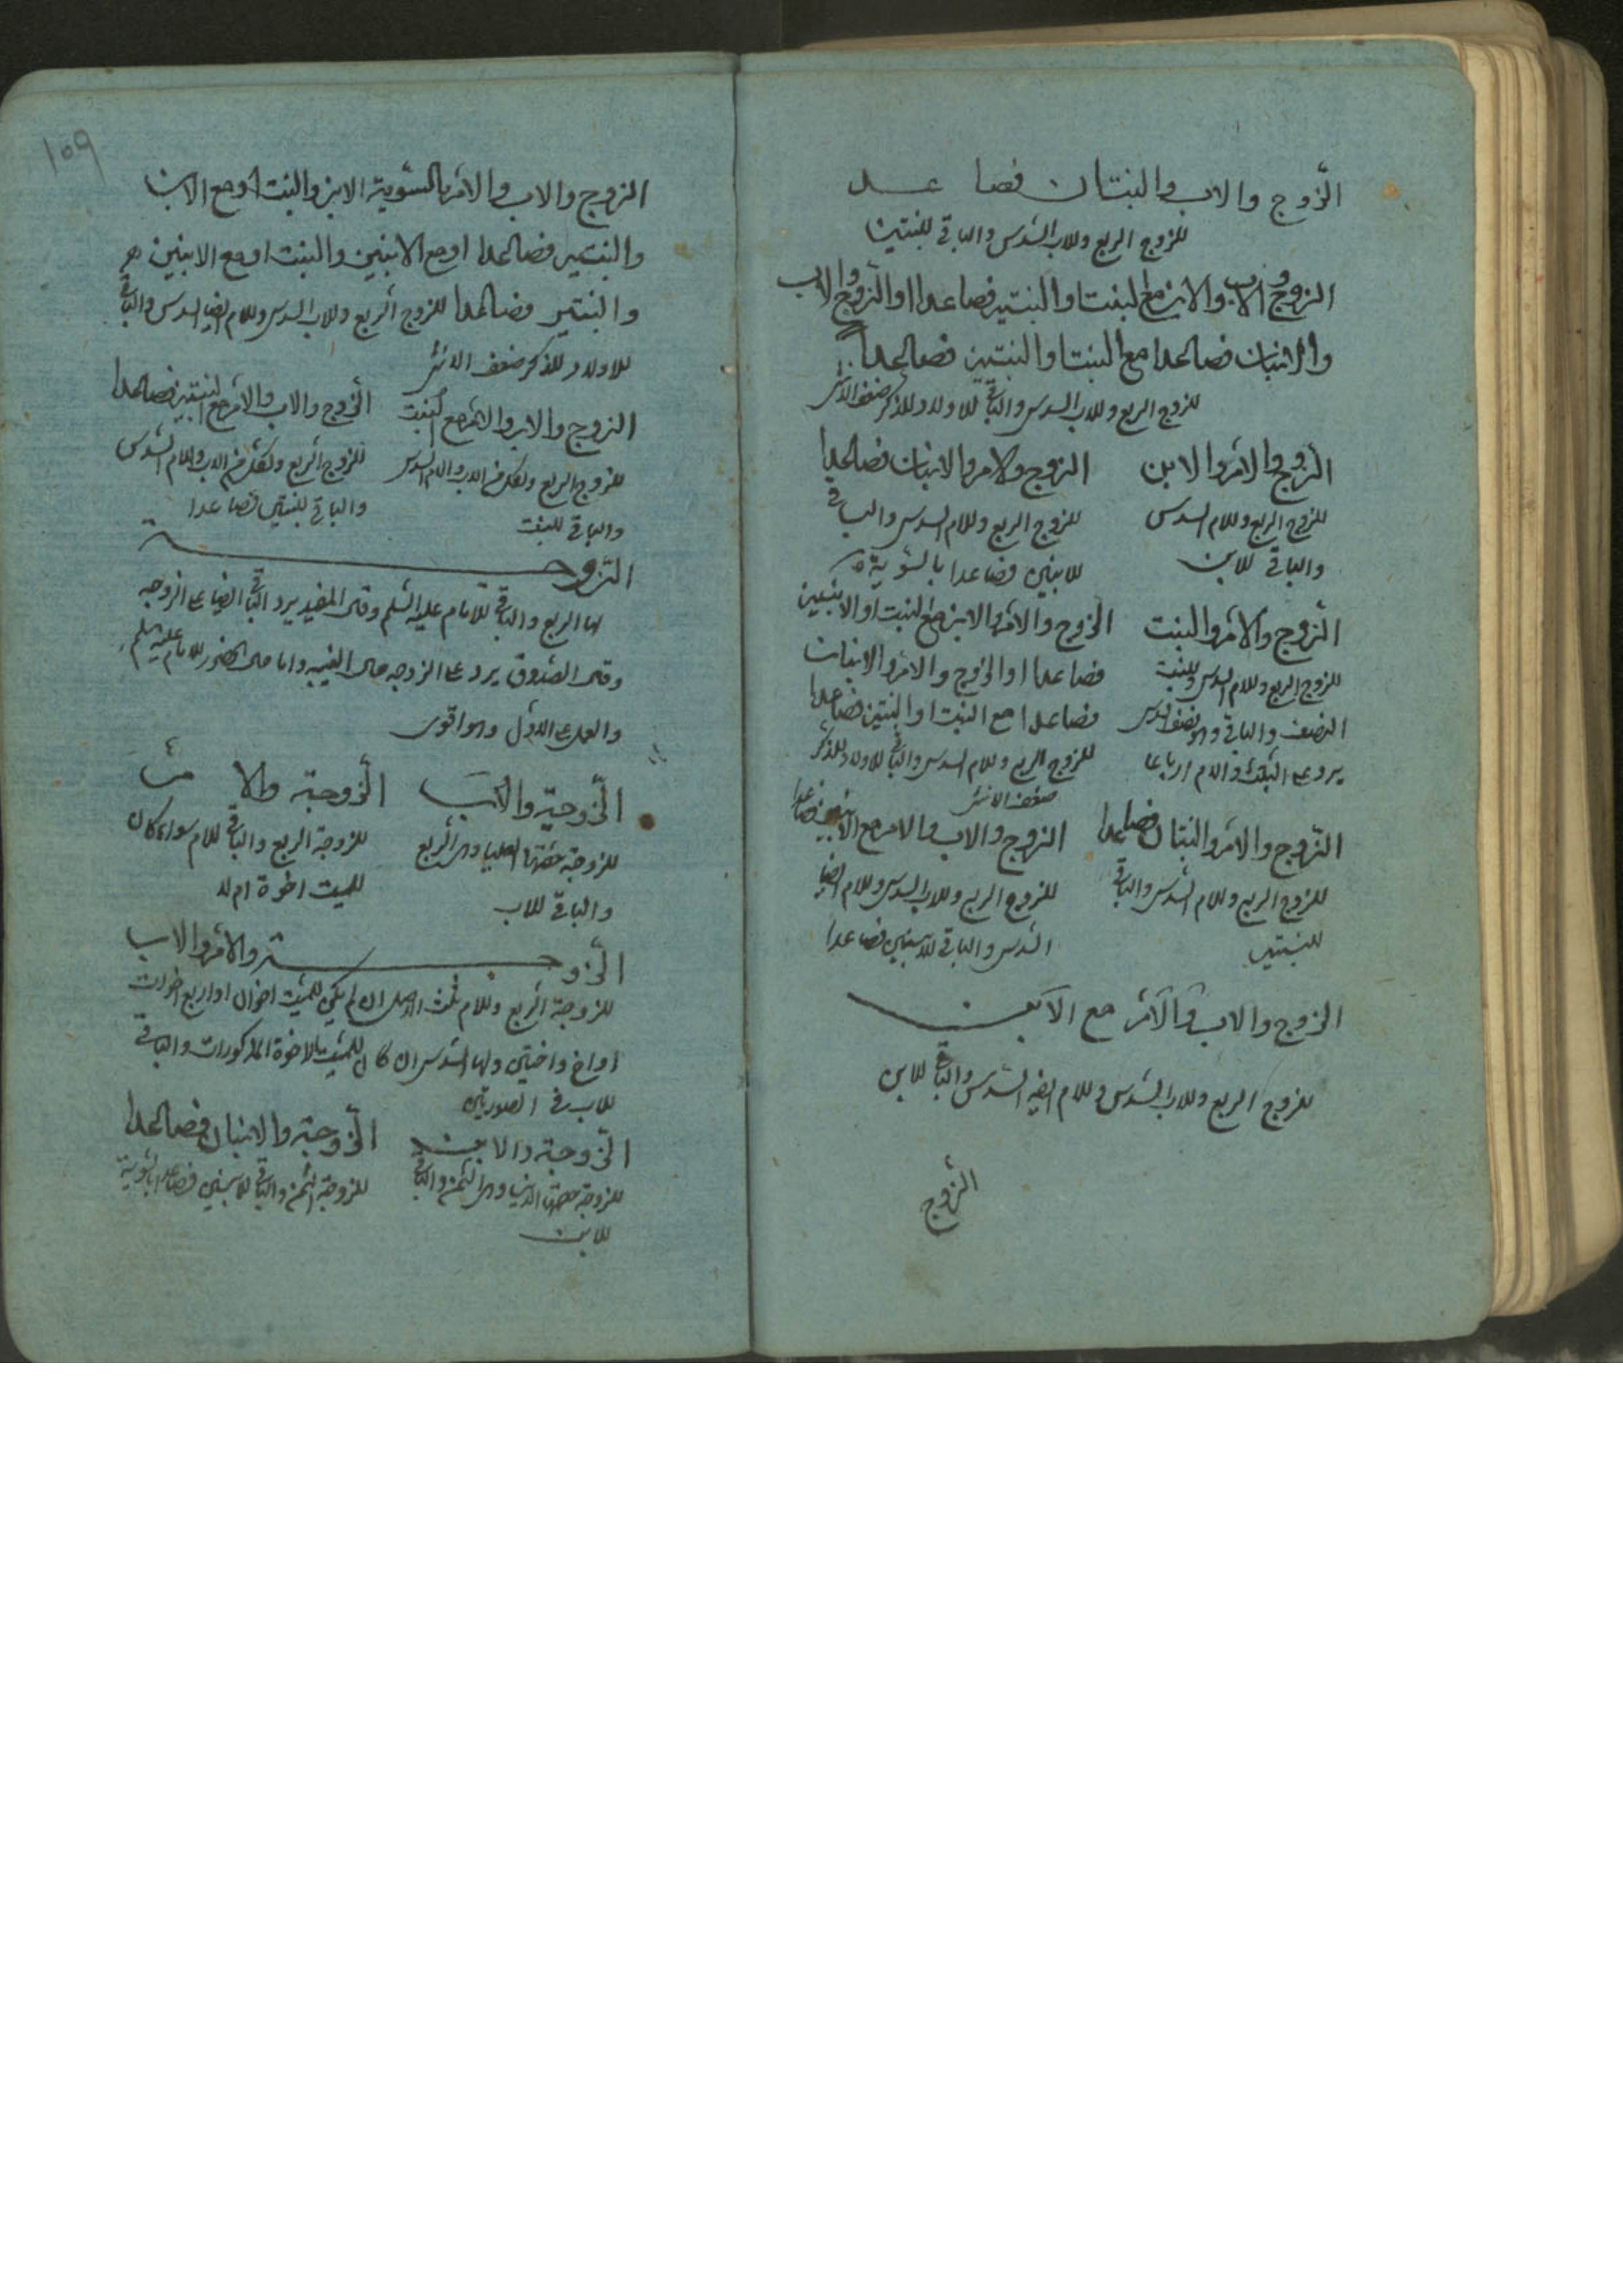 الزوج والاب والبنتان فصاعدا
للزوج الربع وللاب السدس والباقي للبنتين
الزوج والاب والابن مع البنت او البنتين فصاعدا او الزوج والاب
والابنان فصاعدا مع البنت او البنتين فصاعدا
للزوج الربع وللاب السدس والباقي للاولاد للذكر ضعف الانثى
الزوج والام والابن
للزوج الربع وللام السدس
والباقي للابن
الزوج والام والابنان فصاعدا
للزوج الربع وللام السدس والباقي
للابنين فصاعدا بالسوية
الزوج والام والبنت
للزوج الربع وللام السدس وللبنت
النصف والباقي وهو نصف السدس
يرد على البنت والام ارباعا
الزوج والام والابن مع البنت او الابنتين
فصاعدا او الزوج والام والابنان
فصاعدا مع البنت او البنتين فصاعدا
للزوج الربع وللام السدس والباقي للاولاد للذكر
ضعف الانثى
الزوج والام والبنتان فصاعدا
للزوج الربع وللام السدس والباقي
للبنتين
الزوج والاب والام مع الابنين فصاعدا
للزوج الربع وللاب السدس وللام ايضا
السدس والباقي للابنين فصاعدا
الزوج والاب والام مع الابن
للزوج الربع وللاب السدس وللام ايضا السدس والباقي للابن
الزوج
١٥٩
الزوج والاب والام بالسوية الابن والبنت او مع الابن
والبنتين فصاعدا او مع الابنين والبنت او مع الابنين
والبنتين فصاعدا للزوج الربع وللاب السدس وللام ايضا السدس والباقي
للاولاد للذكر ضعف الانثى
الزوج والاب والام مع البنت
للزوج الربع ولكل من الاب والام السدس
والباقي للبنت
الزوج والاب والام مع البنتين فصاعدا
للزوج الربع ولكل من الاب والام السدس
والباقي للبنتين فصاعدا
الزوجة
لها الربع والباقي للامام عليه السلم وقال المفيد يرد الباقي ايضا على الزوجه
وقال الصدوق يرد على الزوجه حال الغيبه واما حال الحضور للامام عليه السلم
والعمل على الاول وهو اقوى
الزوجة والاب
للزوجة حصتها العليا وهي الربع
والباقي للاب
الزوجة والام
للزوجة الربع والباقي للام سواء كان
للميت اخوة ام لا
الزوجة والام والاب
للزوجة الربع وللام ثلث الاصل ان لم يكن للميت اخوان او اربع اخوات
او اخ واختين ولها السدس ان كان للميت الاخوة المذكورات والباقي
للاب في الصورتين
الزوجة والابن
للزوجة حصتها الدنيا وهي الثمن والباقي
للابن
الزوجة والابنان فصاعدا
للزوجة الثمن والباقي للابنين فصاعدا بالسوية